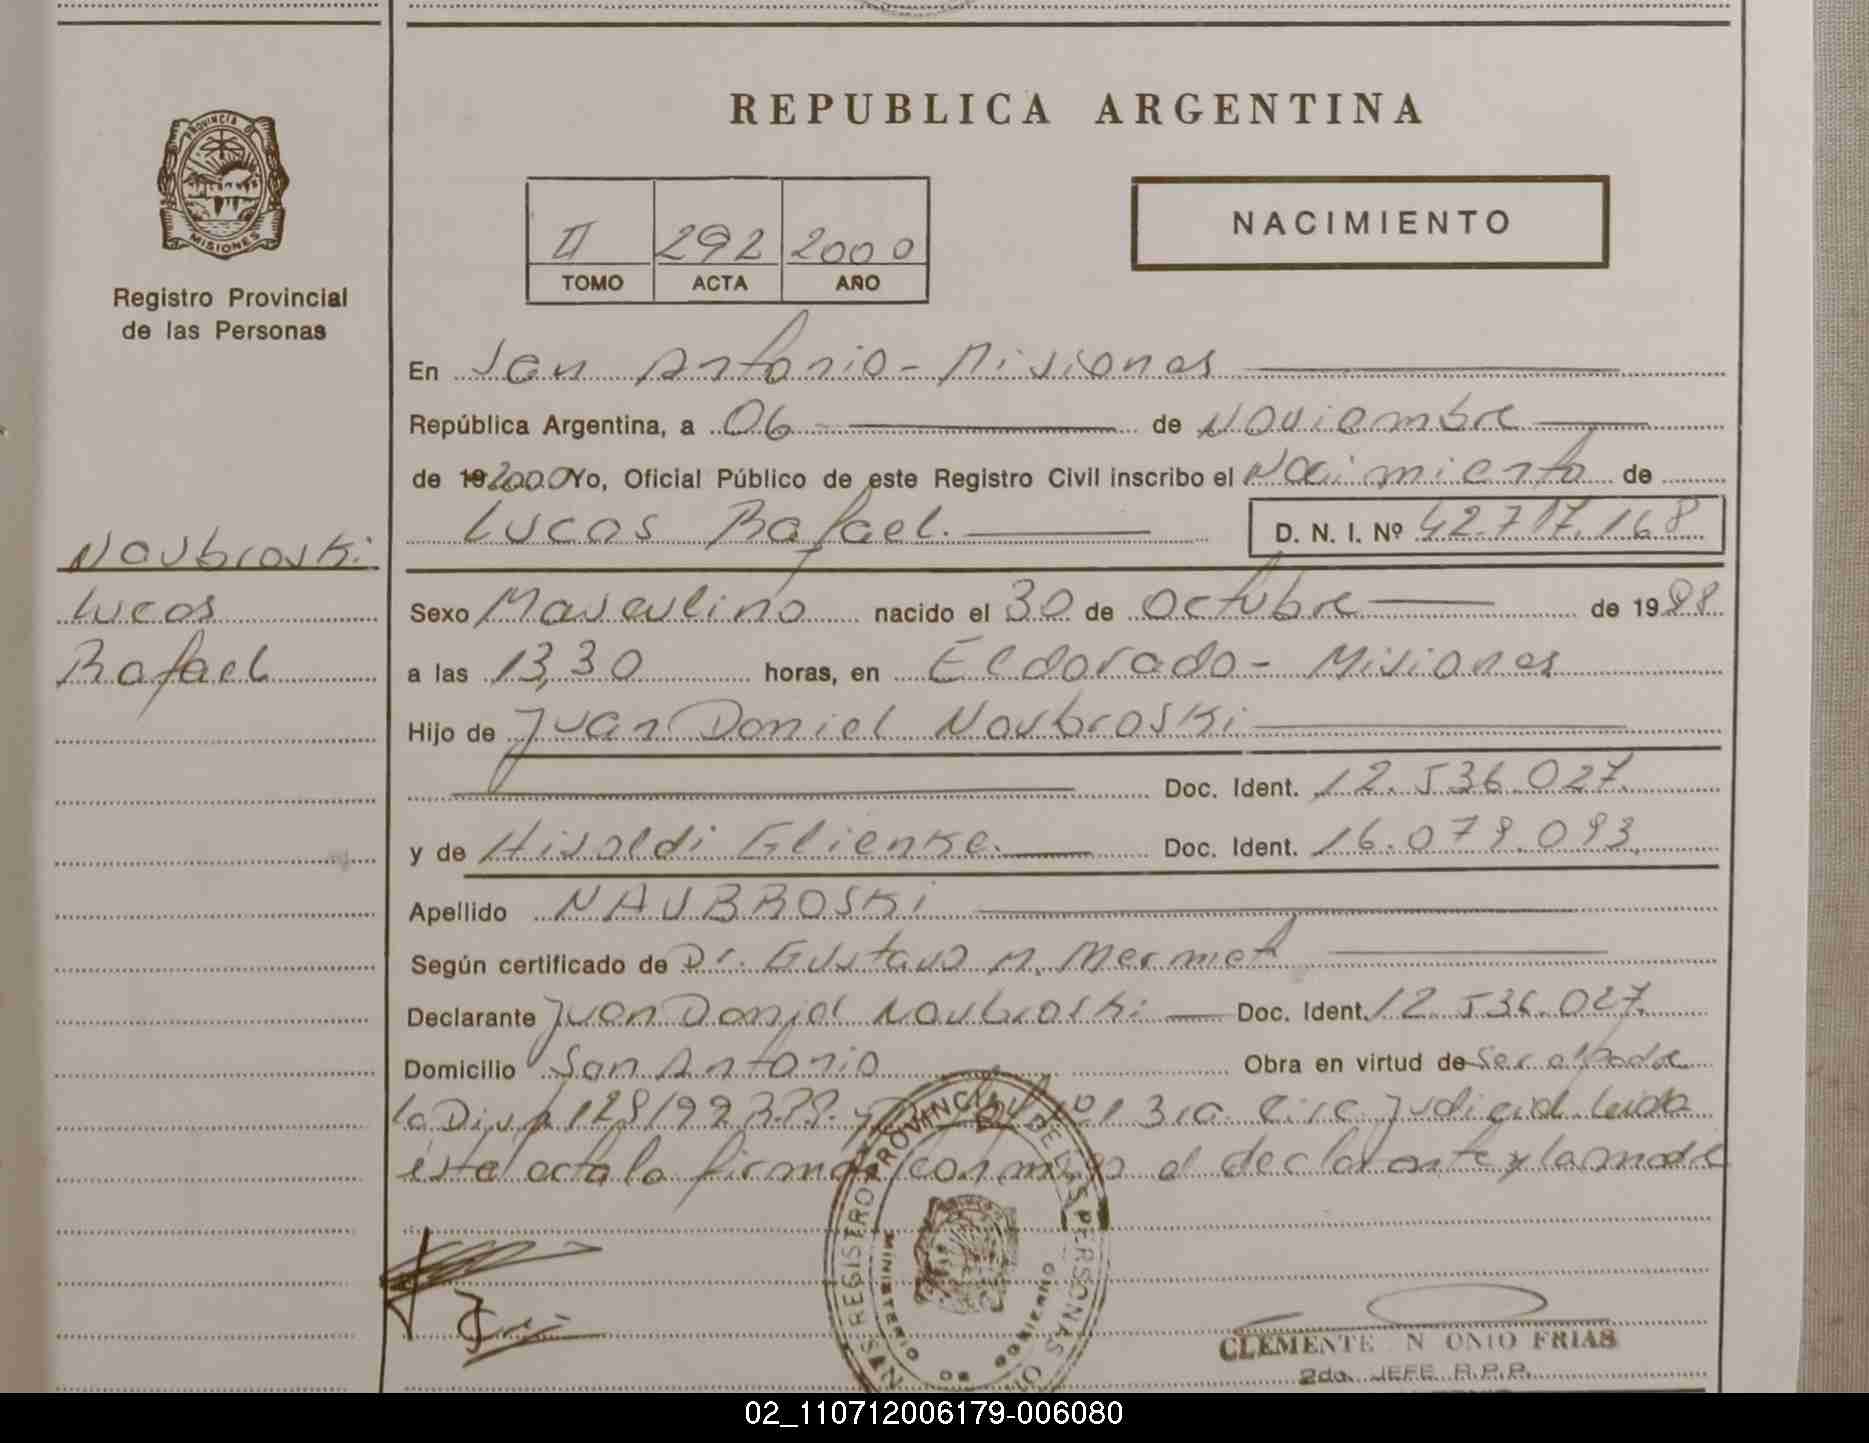 REPUBLICA ARGENTINA
PROVINCIA D
MISIONES
Registro Provincial
de las Personas
II 292 2000
TOMO ACTA AÑO
NACIMIENTO
En San Antonio - Misiones
República Argentina, a 06 de Noviembre
de 19 2000 Yo, Oficial Público de este Registro Civil inscribo el Nacimiento de
Lucas Rafael. D. N. I. Nº 42.717.168
Naubroski
Lucas
Rafael
Sexo Masculino nacido el 30 de Octubre de 19
a las 13,30 horas, en Eldorado - Misiones
Hijo de Juan Daniel Naubroski
Doc. Ident. 12.536.027.
y de Hisoldi Glienke. Doc. Ident. 16.079.093.
Apellido NAUBROSKI
Según certificado de Dr. Gustavo A. Mermet
Declarante Juan Daniel Naubroski Doc. Ident. 12.536.027.
Domicilio San Antonio Obra en virtud de ser el padre
la 3ra. Circ. Judicial leida
este acta la firman conmigo el declarante y la madre
REGISTRO PROVINCIAL DE LAS PERSONAS
MINISTERIO DE GOBIERNO
SAN
CLEMENTE N ONIO FRIAS
2do. JEFE R.P.P.
02_110712006179-006080